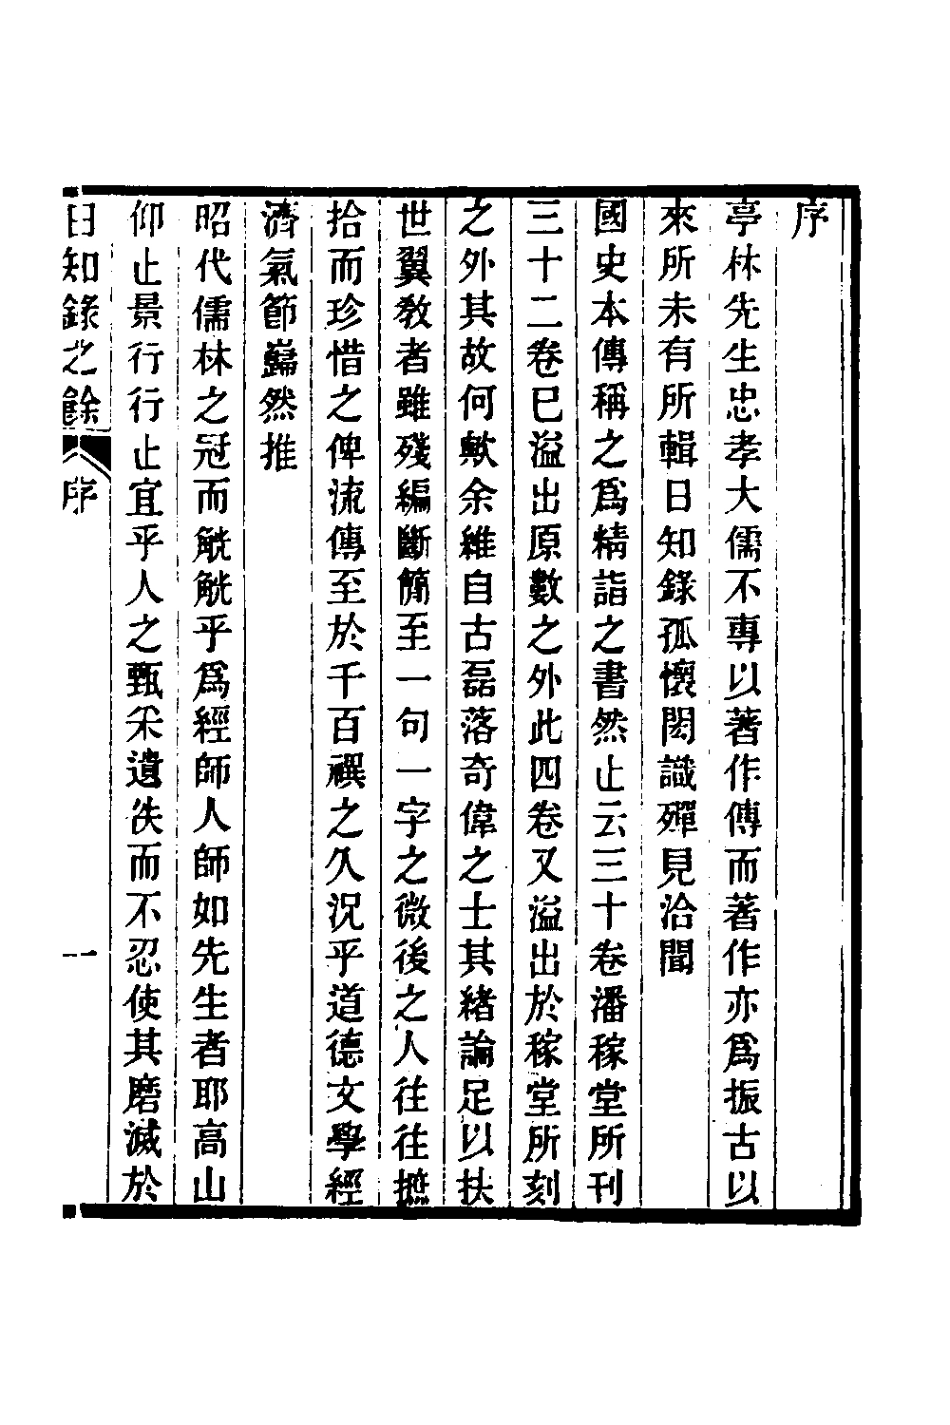 序
亭林先生忠孝大儒不專以著作傳而著作亦爲振古以
來所未有所輯日知錄孤懷閎識殫見洽聞
國史本傳稱之爲精詣之書然止云三十卷潘稼堂所刊
三十二卷巳溢出原數之外此四卷又溢出於稼堂所刻
之外其故何歟余維自古磊落奇偉之士其緒論足以扶
世翼敎者雖殘編斷簡至一句一字之微後之人往往摭
拾而珍惜之俾流傳至於千百禩之久況乎道德文學經
濟氣節巋然推
昭代儒林之冠而觥觥乎爲經師人師如先生者耶高山
仰止景行行止宜乎人之甄采遺佚而不忍使其磨滅於
日知錄之餘 序 一